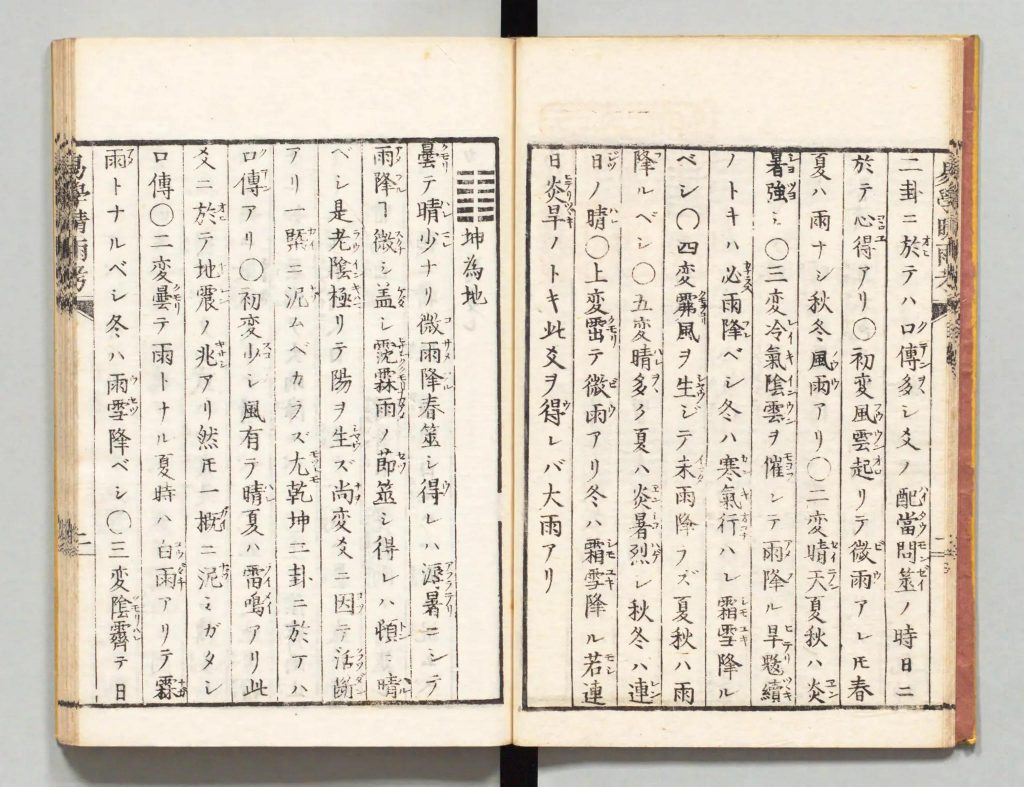 二卦ニ於テハ口傳多シ爻ノ配當問筮ノ時日ニ
於テ心得アリ〇初変風雲起リテ微雨アレ𪜈春
夏ハ雨ナシ秋冬風雨アリ〇二変晴天夏秋ハ炎
暑強シ〇三変冷氣陰雲ヲ催シテ雨降ル旱魃續
ノトキハ必雨降ベシ冬ハ寒氣行ハレ霜雪降ル
ベシ〇四変霏風ヲ生ジテ未雨降ラズ夏秋ハ雨
降ルベシ〇五変晴多ク夏ハ炎暑烈シ秋冬ハ連
日ノ晴〇上変雲出テ微雨アリ冬ハ霜雪降ル若連
日炎旱ノトキ此爻ヲ得レバ大雨アリ
坤為地
曇テ晴少ナリ微雨降春筮シ得レハ溽暑ニシテ
雨降ヿ微シ盖シ霃霖雨ノ節筮シ得レハ頓ニ晴
ベシ是老陰極リテ陽ヲ生ズ尚変爻ニ因テ活斷
アリ一槩ニ泥ムベカラズ尤乾坤二卦ニ於テハ
口傳アリ〇初変少シ風有テ晴夏ハ雷鳴アリ此
爻ニ於テ地震ノ兆アリ然𪜈一概ニ泥ミガタシ
口傳〇二変曇テ雨トナル夏時ハ白雨アリテ霖
雨トナルベシ冬ハ雨雪降ベシ〇三変陰霽テ日
易學晴雨考
二